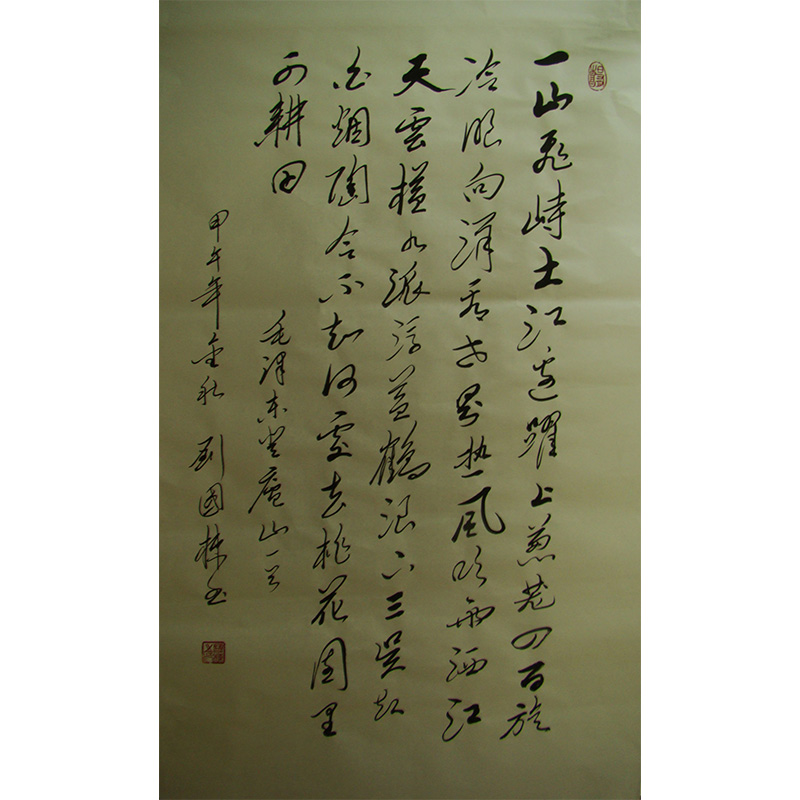 一山飛峙大江边躍上葱茏四百旋
冷眼向洋看世界热風吹雨洒江
天雲横九派浮黄鶴浪下三吴起
白烟陶令不知何處去桃花園里
可耕田
毛泽东登廬山一首
甲午年金秋 刘國棟书